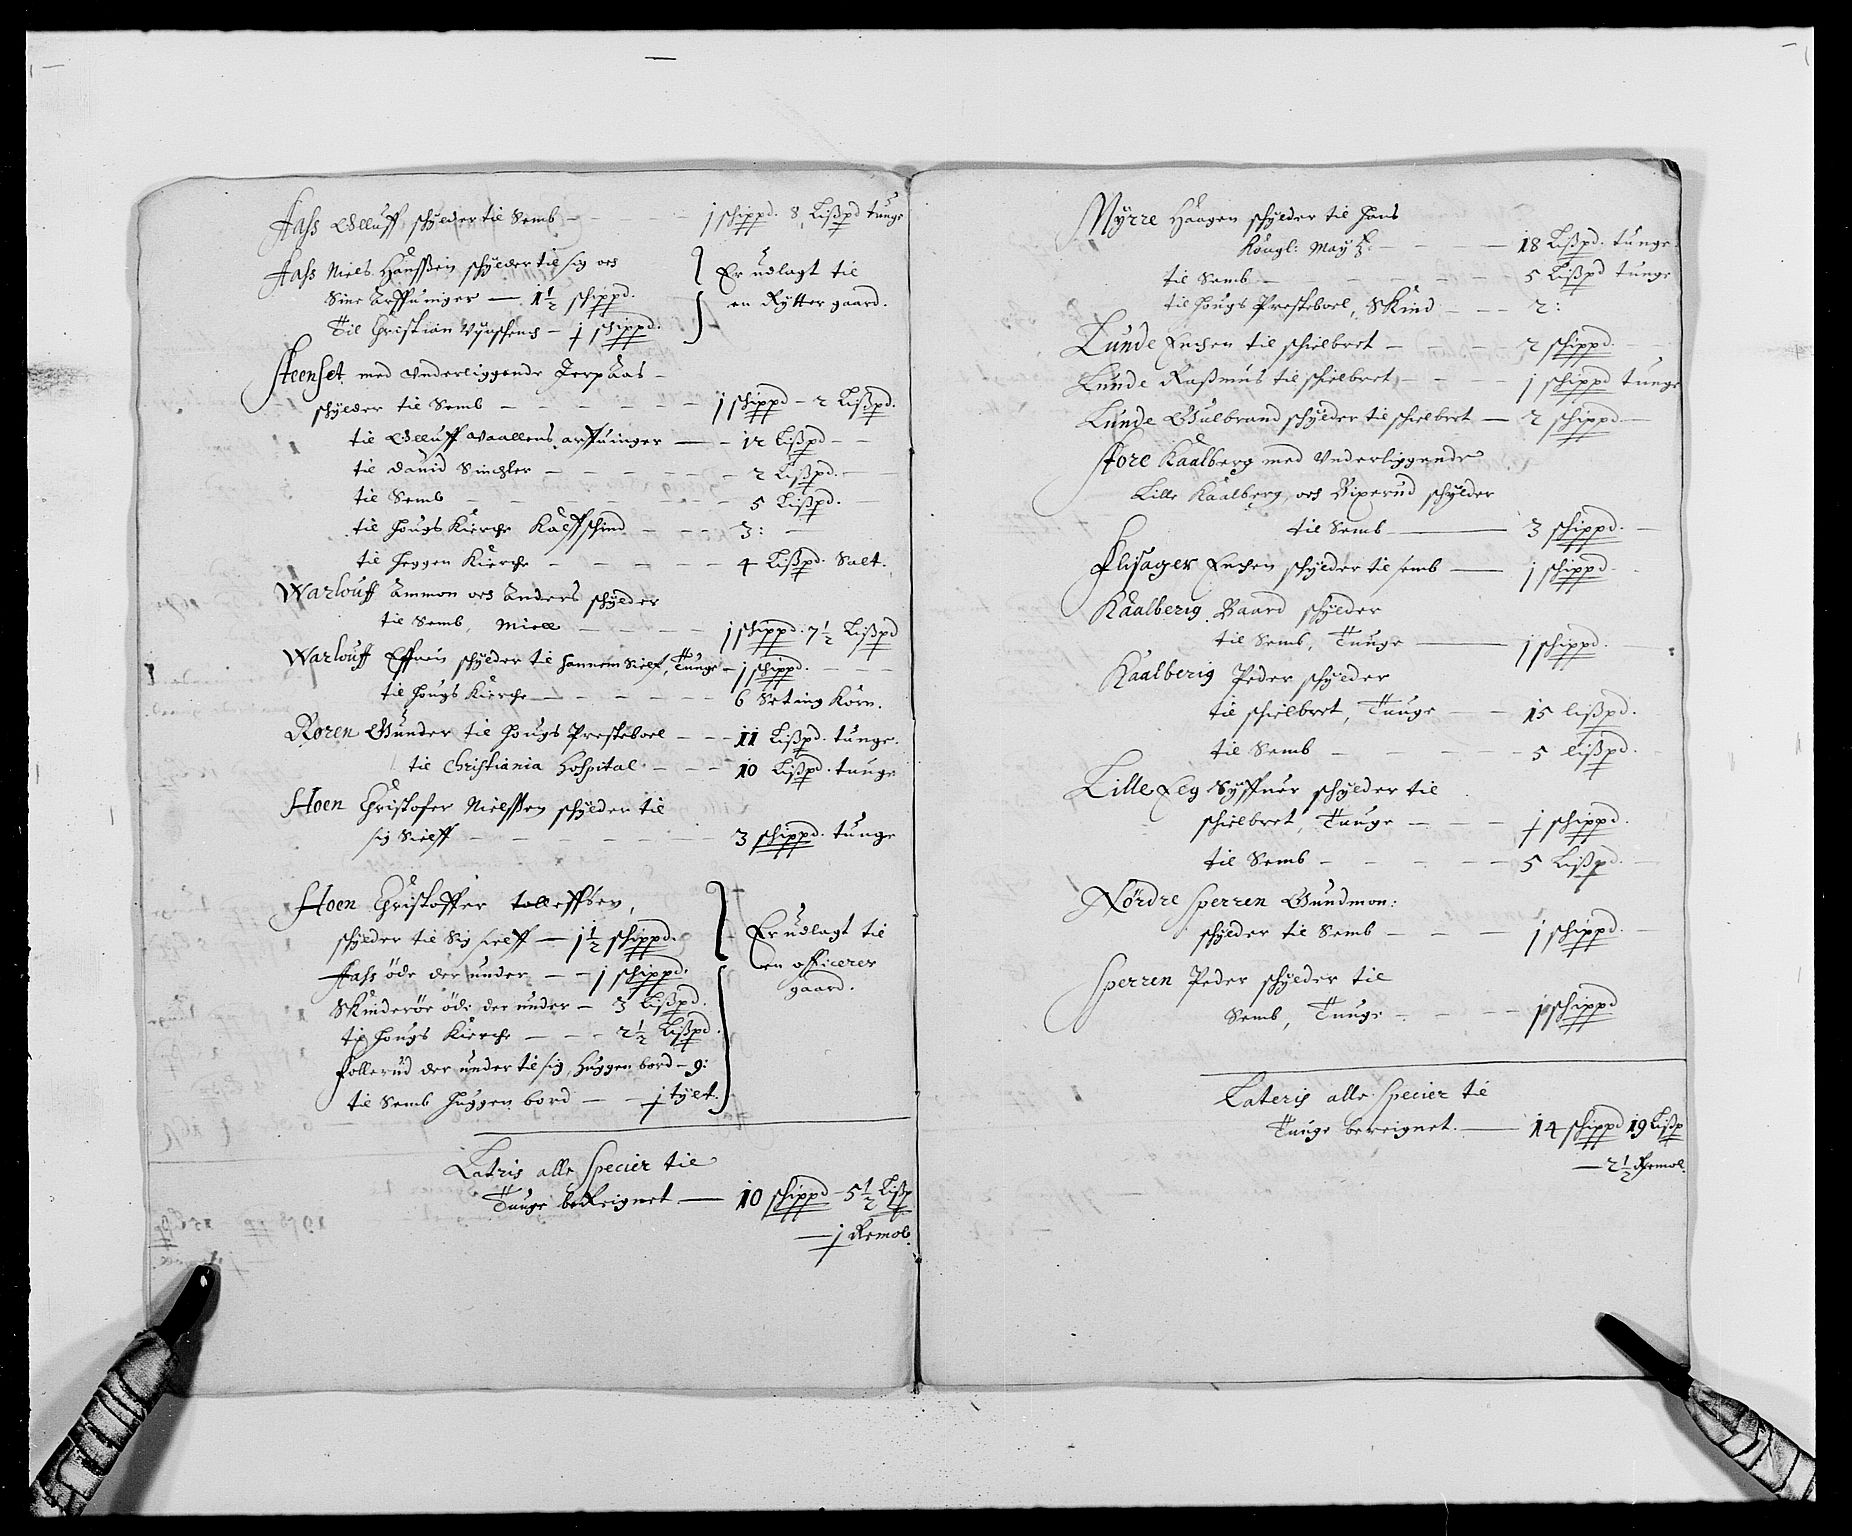 Aass Olluff schylder til Semb – – – 1 schippd. 8 Lißpd tunge
Aass Niels Hanssen schylder til sig och
Sine Arffuinger — 1½ schippd.
Til Christian – 1 schippd.
Er udlagt til
en Rytter gaard.
Steenset med underliggende Jerpaas –
schylder til Semb – – – – – – 1 schippd – 2 Lißpd.
til Olluff Vaallens arffuinger — 12 Lißpd – –
til David Sinchler – – – – – – 2 Lißpd.
til Semb – – – – – – – – 5 Lißpd.
til Hougs Kierche Kalffschind – – – 3: –
til Heggen Kierche – – – – – 4 Lißpd. Salt.
Warlouff Ammon och Anders schylder
til Semb, Miell – – – – 1 schippd. 7½ Lißpd
Warlouff Effuen schylder til hannem Sielf, Tunge – 1 schippd. – –
til Hougs Kierche – – – – – 6 Seting Korn.
Roren Gunder til Hougs Presteboel – – – 11 Lißpd. tunge.
til Christiania Hospital – – – 10 Lißpd. tunge
Hoen Christofer Nielssen schylder til
sig Sielff – – – – – – – 3 schippd. tunge
Hoen Christoffer tolleffsen,
schylder til Sig sielff — 1½ schippd.
Aass öde der under – – 1 schippd.
Skinderöe öde der under – 3 Lißpd.
til Hougs Kierche – – – 2½ Lißpd.
follerud der under til sig, Huggen bord – 9:
til Semb Huggen bord – – 1 tylt.
Er udlagt til
en officerer
gaard.
Latris alle Specier til
Tunge beReignet — 10 schippd – 5½ Lißp
— 1 Remol.
Myrre Haagen schylder til Hans
Kongl: May: – – – – 18 Lißpd. tunge
til Semb – – – – – – 5 Lißpd tunge
til Hougs Presteboel, Skind – – – 2:
Lunde Erichen til schielbret – – – – 2 schippd. – –
Lunde Rasmus til schielbret – – – – 1 schippd tunge
Lunde Gulbrand schylder til schielbret — 2 schippd —
Store Kaalberg med underliggende
Lille Kaalberg, och Biperud schylder
til Semb — 3 schippd. –
Flisager Erichen schylder til semb — 1 schippd –
Kaalberig Baard schylder
til Semb, Tunge — 1 schippd.
Kaalberig Peder schylder
til schielbret, Tunge – – 15 lißpd.
til Semb – – – – – 5 lißpd.
Lille Eeg Syffuer schylder til
schielbret, Tunge – – – 1 schippd.
til Semb – – – – – 5 Lißpd.
Nördre Sperren Gundmon:
schylder til Semb – – – 1 schippd. –
Sperren Peder schylder til
Semb, Tunge – – – – 1 schippd
Lateris alle Specier til
Tunge bereignet. — 14 schippd 19 Lißp
— 2½ Remol.